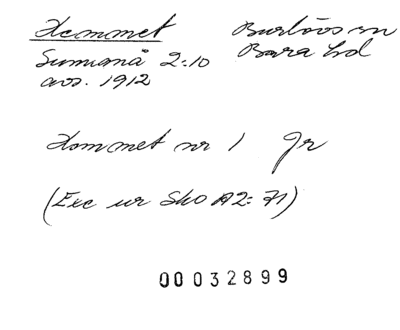 Hemmet Burlövs sn
Sunnanå 2:10 Bara hd
avs. 1912
Hemmet nr 1 Jr
(Exc ur Sko A2:71)
00032899